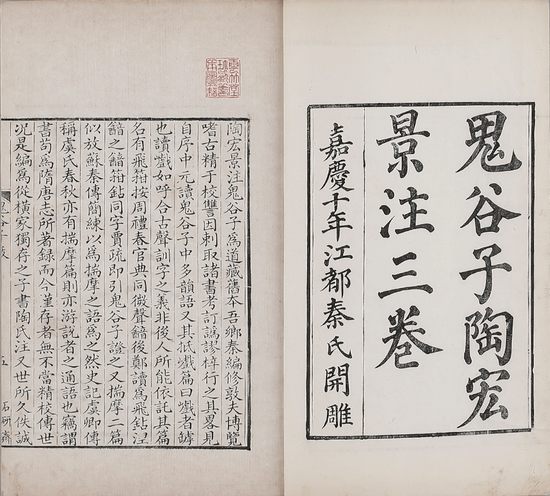 鬼谷子陶宏
景注三卷
嘉慶十年江都秦氏開雕
陶宏景注鬼谷子爲道藏舊本吾鄉秦編修敦夫博覽
嗜古精于校讐因刺取諸書考訂譌謬梓行之其畧見
自序中元讀鬼谷子中多韻語又其抵巇篇曰巇者罅
也讀巇如呼合古聲訓字之義非後人所能依託其篇
名有飛箝按周禮春官典同微聲韽後鄭讀爲飛鉆涅
韽之韽箝鉆同字賈疏即引鬼谷子證之又揣摩二篇
似放蘇秦傳簡練以爲揣摩之語爲之然史記虞卿傳
稱虞氏春秋亦有揣摩篇則亦游說者之通語也竊謂
書苟爲隋唐志所著録而今僅存者無不當精校傳世
况是編爲從橫家獨存之子書陶氏注又世所久佚誠
五 石研齋